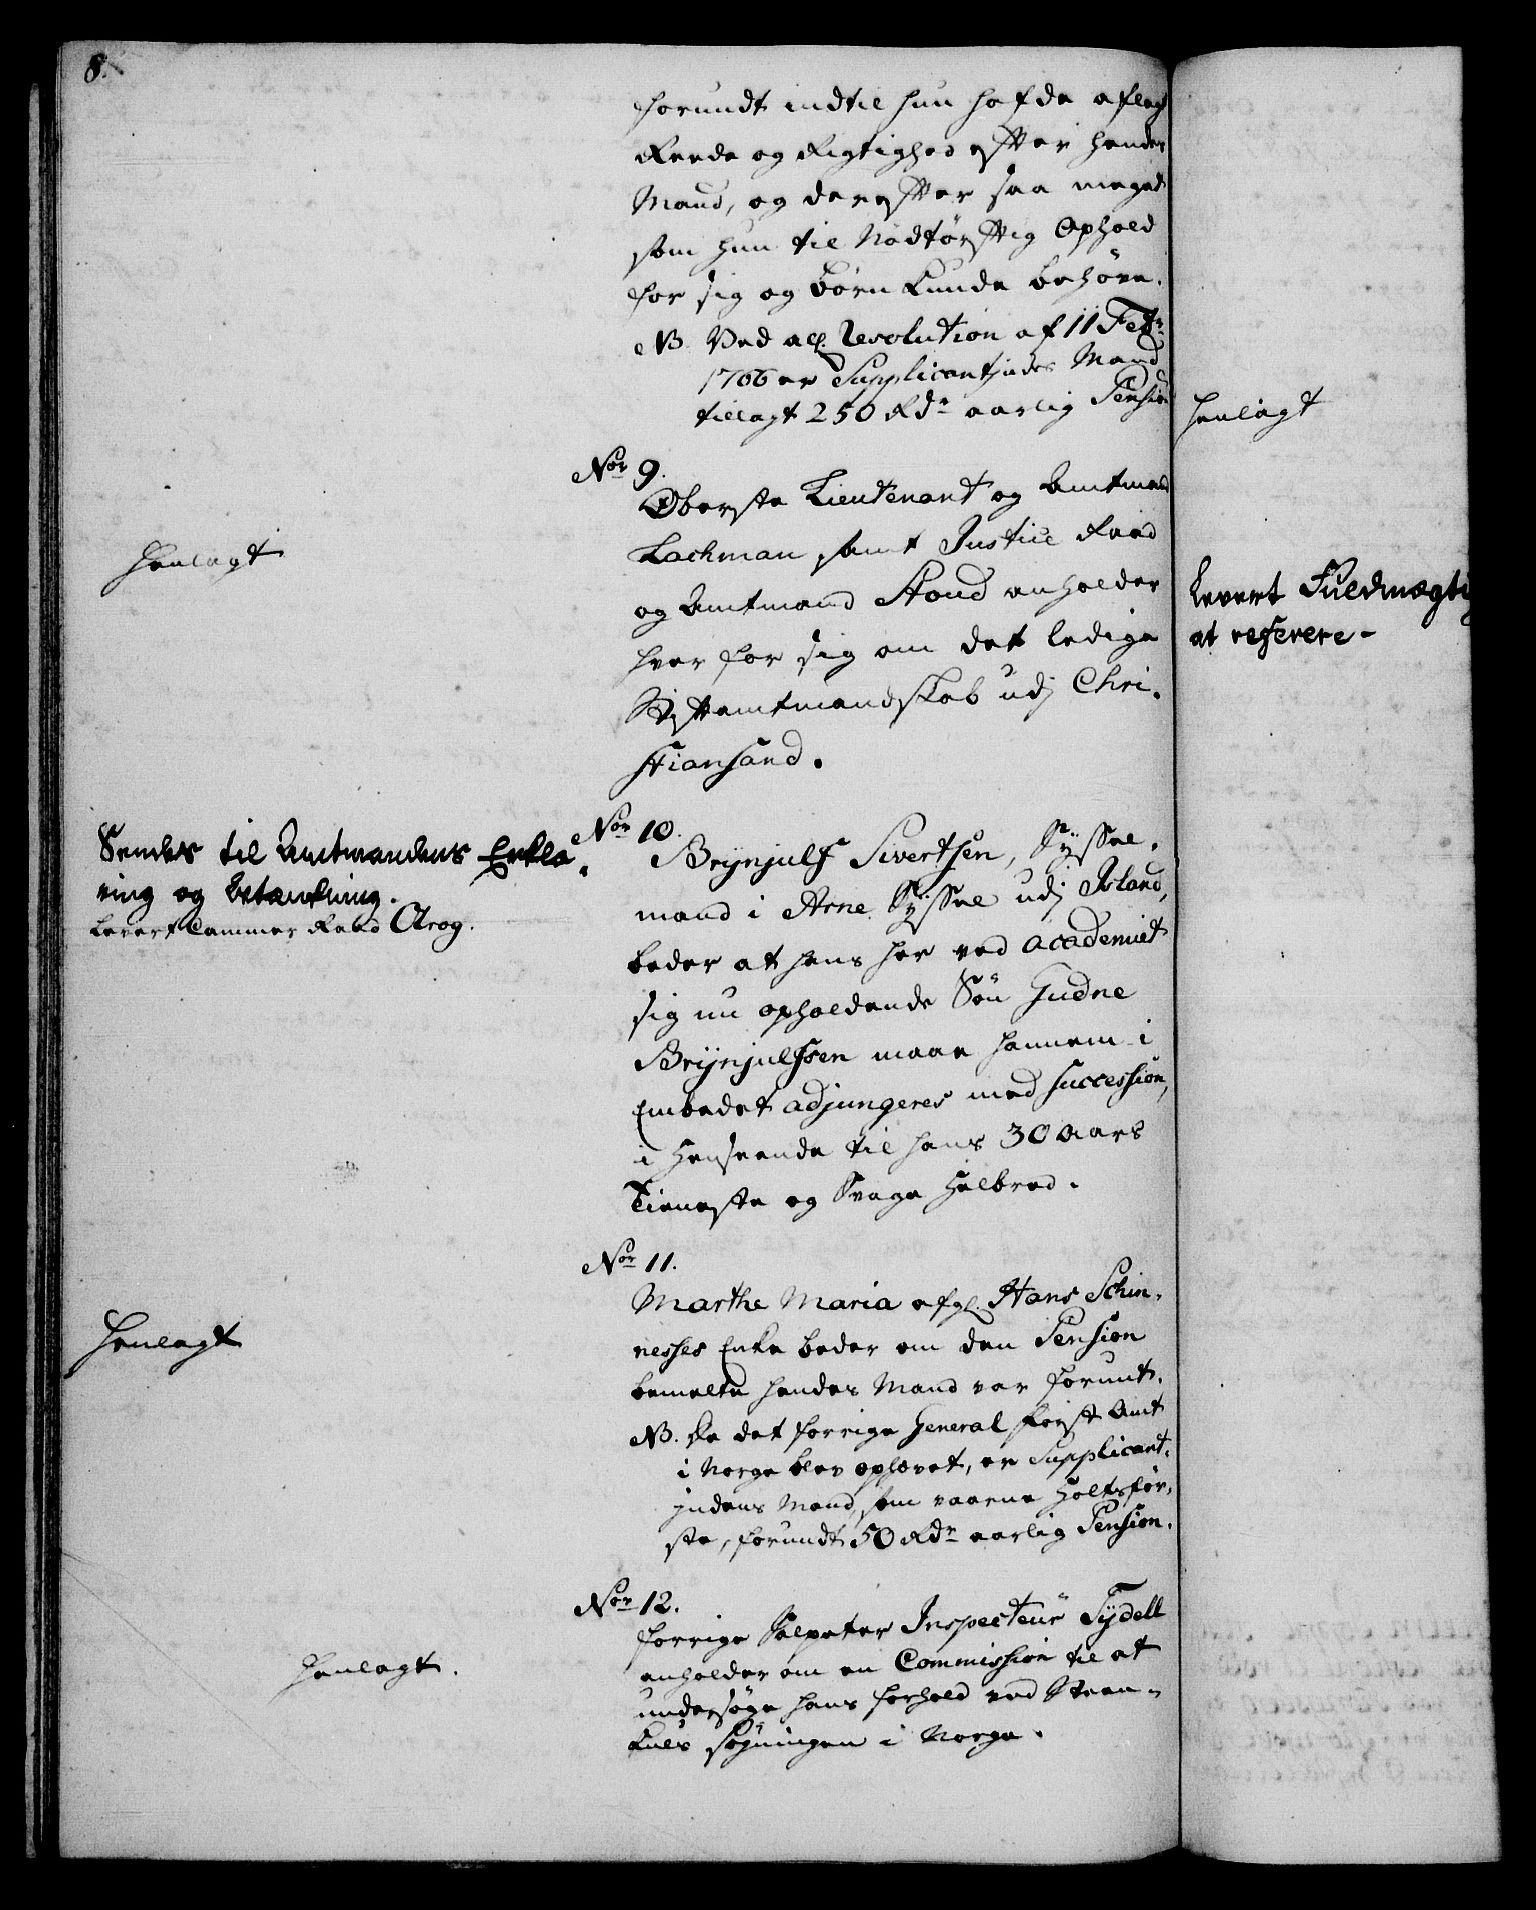 8.
forundt indtil hun hafde aflagt
Reede og Rigtighed efter hendes
Mand, og derefter saa meget
som hun til Nødtørftig Ophold
for sig og Børn kunde behøve.
NB. Ved all. Resolution af 11 Febr.
1766 er Supplicantindes Mand
tillagt 250 Rdr aarlig Pension
Henlagt
Nor 9.
Oberste Lieutenant og Amtmand
Lachman samt Justice Raad
og Amtmand Stoud anholder
hver for sig om det ledige
Stiftamtmandskab udj Chri-
stiansand.
Henlagt
Nor 10.
Brynjulf Sivertsen, Syssel-
mand i Arne Syssel udj Island,
beder at hans her ved academiet
sig nu opholdende Søn Gudne
Brynjulfsen maae hannem i
Embedet adjungeres med Succession,
i Henseende til hans 30 Aars
Tieneste og Svage Helbred.
Sendes til Amtmandens Erklæ-
ring og Betænkning.
Levert Cammer Raad
Nor 11.
Marthe Maria afgl. Hans Schin-
nesses Enke beder om den Pension
bemelte hendes Mand var forunt.
NB. da det forrige General Forst Amt
i Norge blev ophævet, er Supplicant-
indens Mand, som vaarne Holtzför-
ste, forundt 50 Rdr aarlig Pension.
Henlagt
Nor 12.
forrige Salpeter Inspecteur Tydell
anholder om en Commission til at
undersøge hans forhold ved Steen-
kuls Søgningen i Norge.
Henlagt.
Henlagt
Levert Fuldmægtig
at referere-